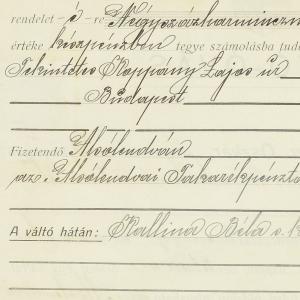 rendelet – ő – re Négyszázharmincz
értéke készpénzben tegye számolásba tud
Tekintetes Kappány Lajos úr
Budapest
Fizetendő Alsólendván
az Alsólendvai Takarékpénzt
A váltó hátán: Kallina Béla s. k